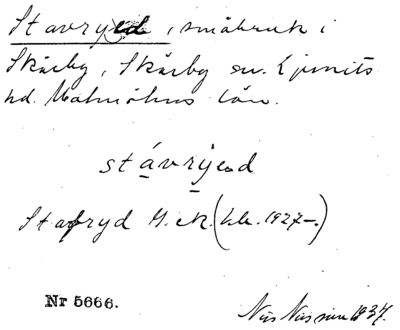 Stavryed, småbruk i
Skårby, Skårby sn. Ljunits
hd. Malmöhus län.
stávryed
Stafryd G. ek. (kb. 1927–.)
Nr 5666.
Nils Nilsson 1937.